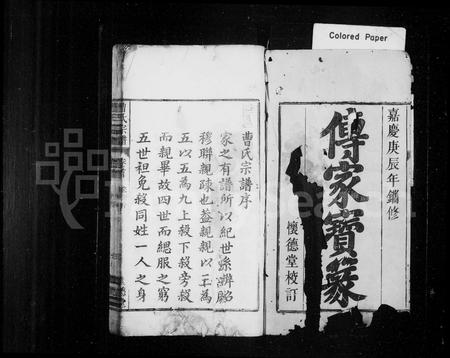 Colored Paper
嘉慶庚辰年鐫修
傳家寶篆
懷德堂校訂
曹氏宗譜序
家之有譜所以紀世系辨昭
穆聯親疎也葢親親以三為
五以五為九上殺下殺旁殺
而親畢故四世而緦服之窮
五世袒免殺同姓一人之身